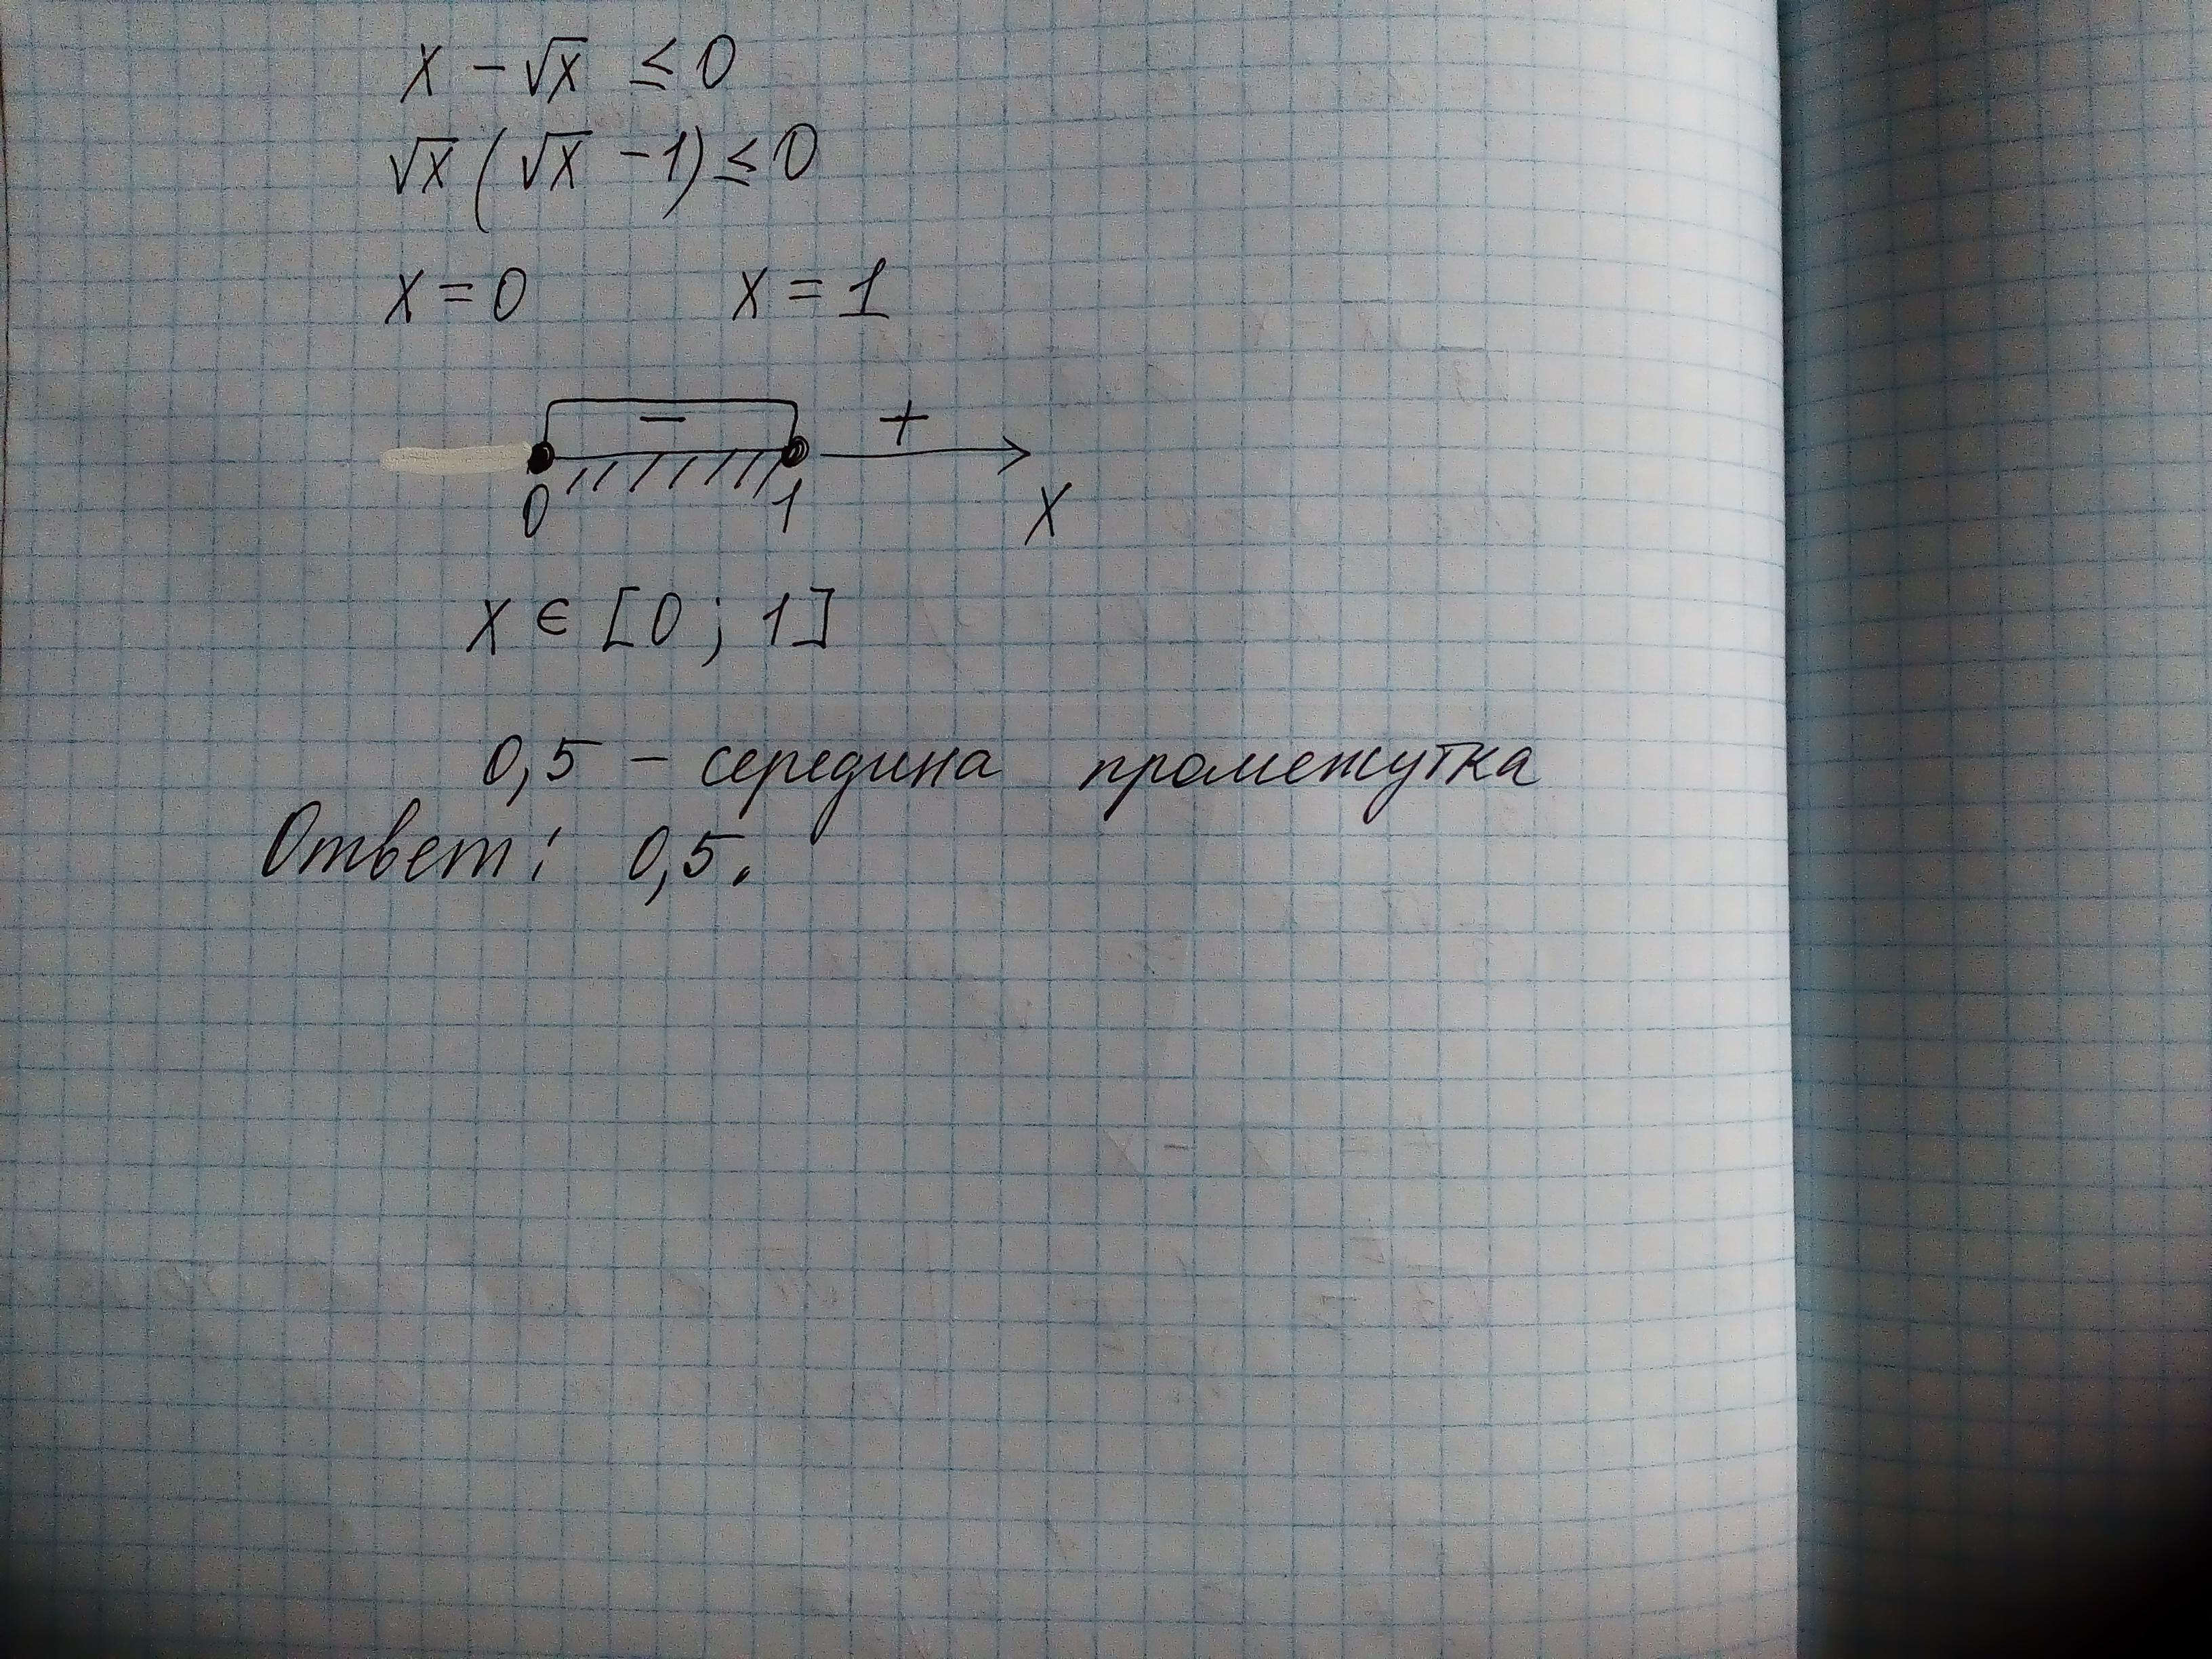 x - √x ≤ 0
√x (√x - 1) ≤ 0
x = 0 x = 1
- +
0 1 x
x ∈ [0; 1]
0,5 - середина промежутка
Ответ: 0,5.